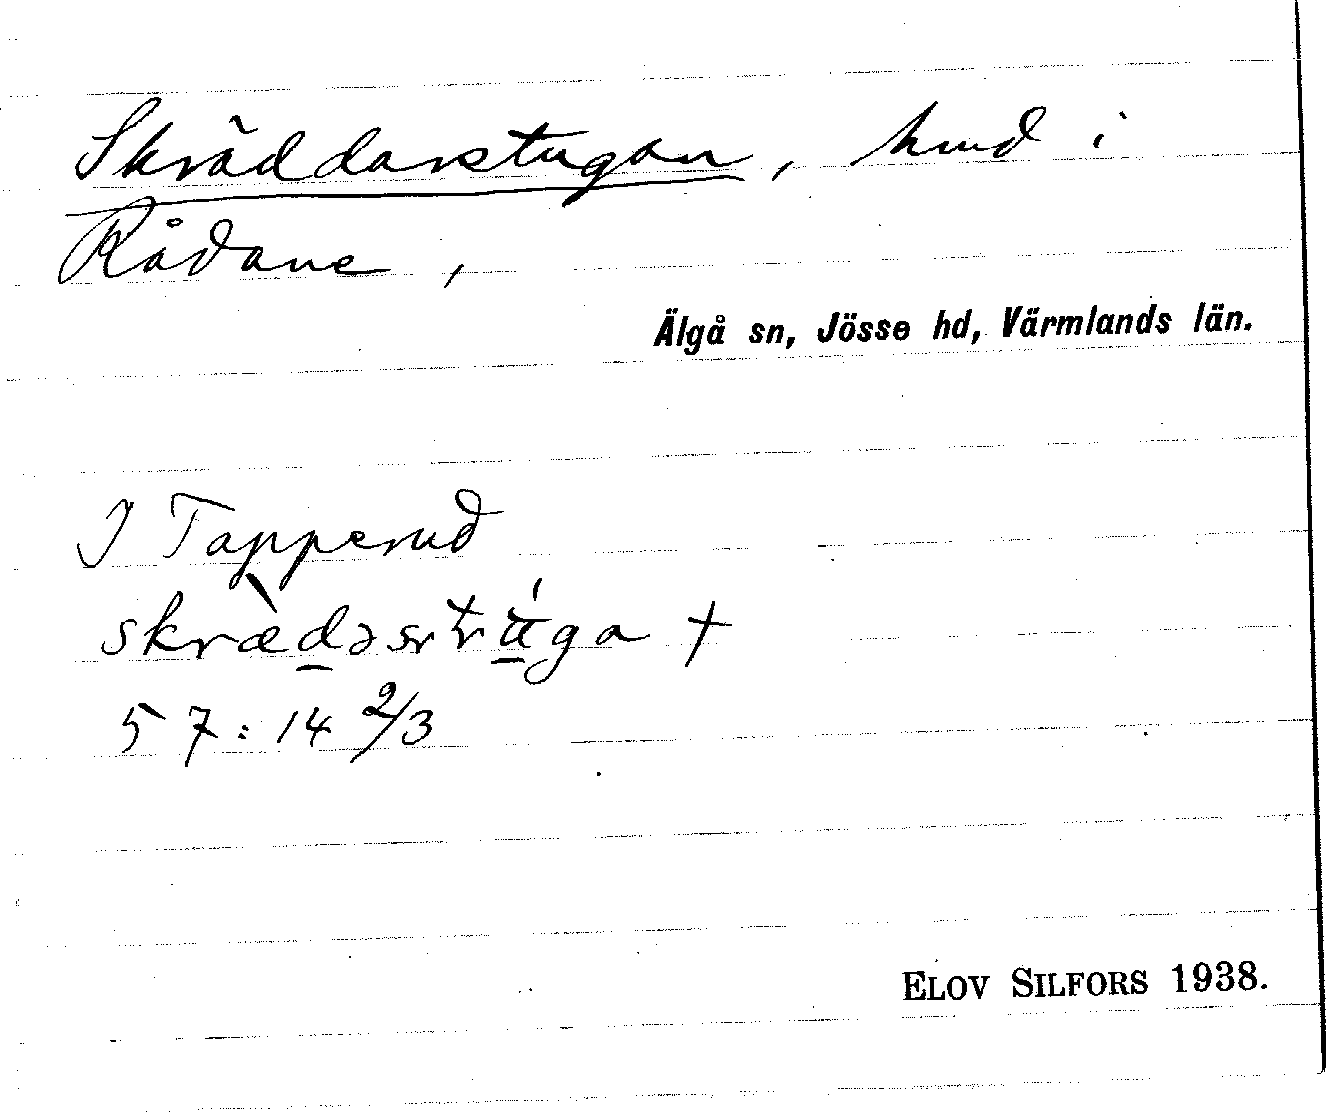 Skräddarstugan, hmd i
Rådane,
Älgå sn, Jösse hd, Värmlands län.
I Tapperud
57:14 2/3
ELOV SILFORS 1938.